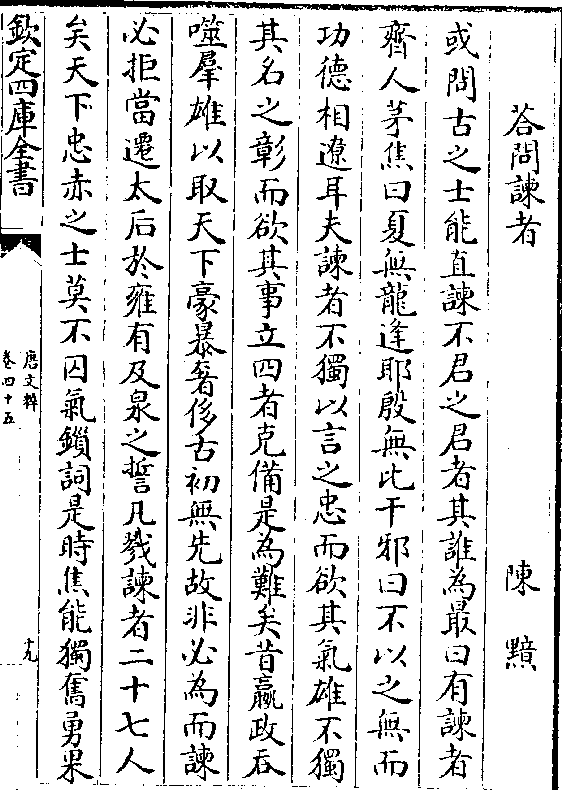 荅問諫者 陳黯
或問古之士能直諫不君之君者其誰為最曰有諫者
齊人茅焦曰夏無龍逄耶殷無比干邪曰不以之無而
功德相遼耳夫諫者不獨以言之忠而欲其氣雄不獨
其名之彰而欲其事立四者克備是為難矣昔嬴政吞
噬羣雄以取天下豪暴奢侈古初無先故非必為而諫
必拒當遷太后於雍有及泉之誓凡戮諫者二十七人
矣天下忠赤之士莫不囚氣鎖詞是時焦能獨奮勇果
欽定四庫全書
唐文粹
卷四十五
十九